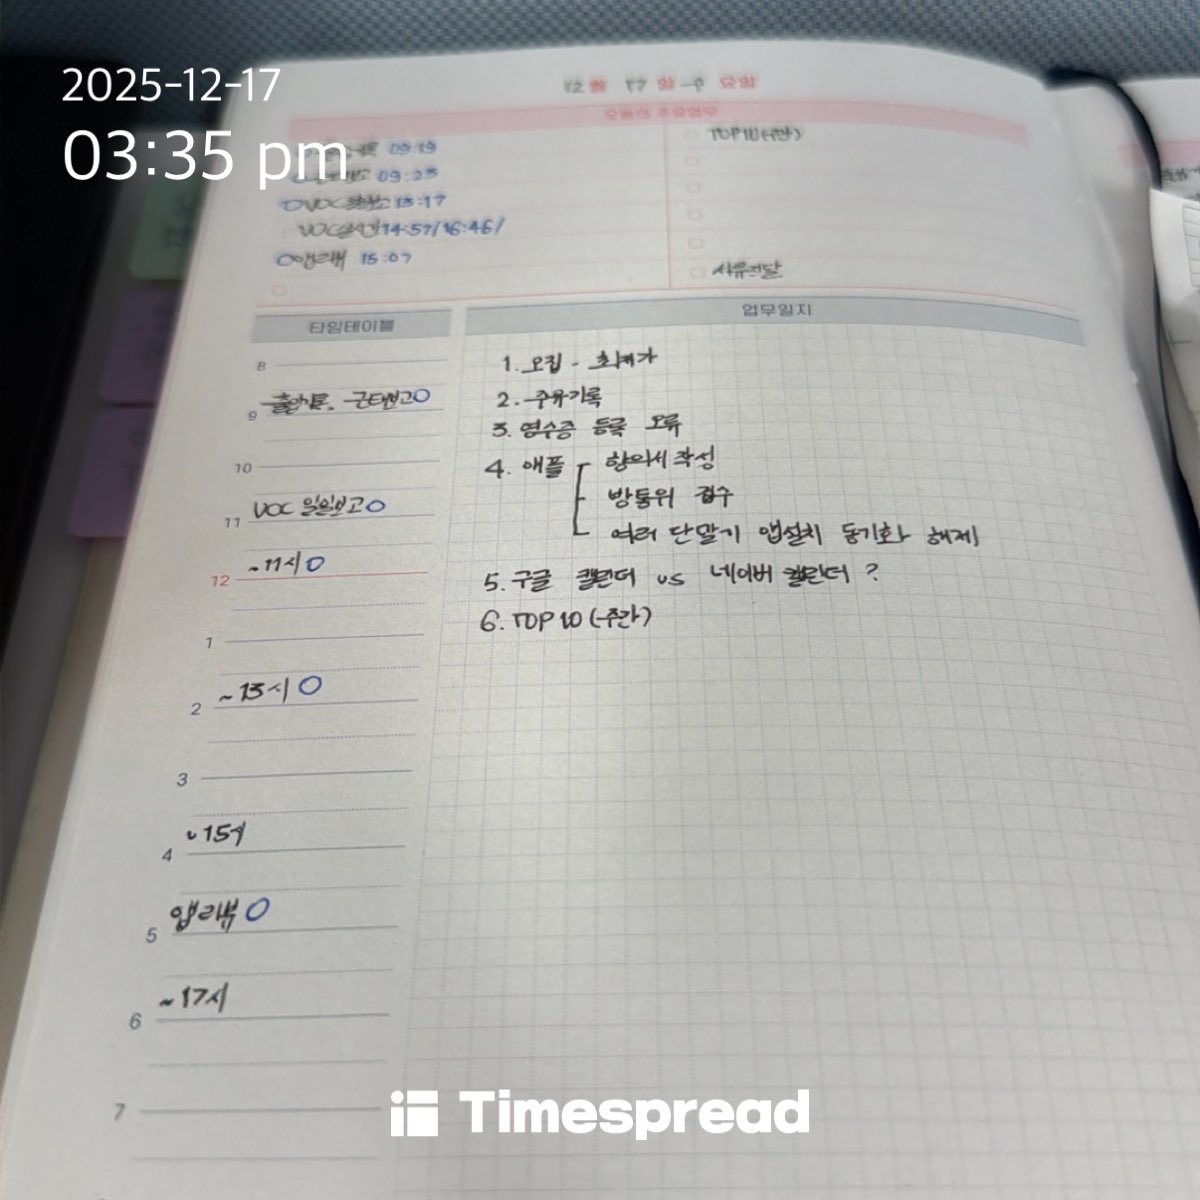 2025-12-17
03:35 pm
12 월 17 일 수 요일
오늘의 주요업무
09:19
09:23
VOC 13:17
VOC 14:57/16:46/
앱리뷰 15:07
TOP10(주간)
서류전달
타임테이블
8
9 출입기록, 근태보고
10
11 VOC 일일보고
12 ~11시
1
2 ~13시
3
4 ~15시
5 앱리뷰
6 ~17시
7
업무일지
1. 오집 - 최저가
2. 주유기록
3. 영수증 등록 오류
4. 애플
항의서 작성
방통위 접수
여러 단말기 앱설치 동기화 해제
5. 구글 캘린더 vs 네이버 캘린더 ?
6. TOP 10 (주간)
Timespread